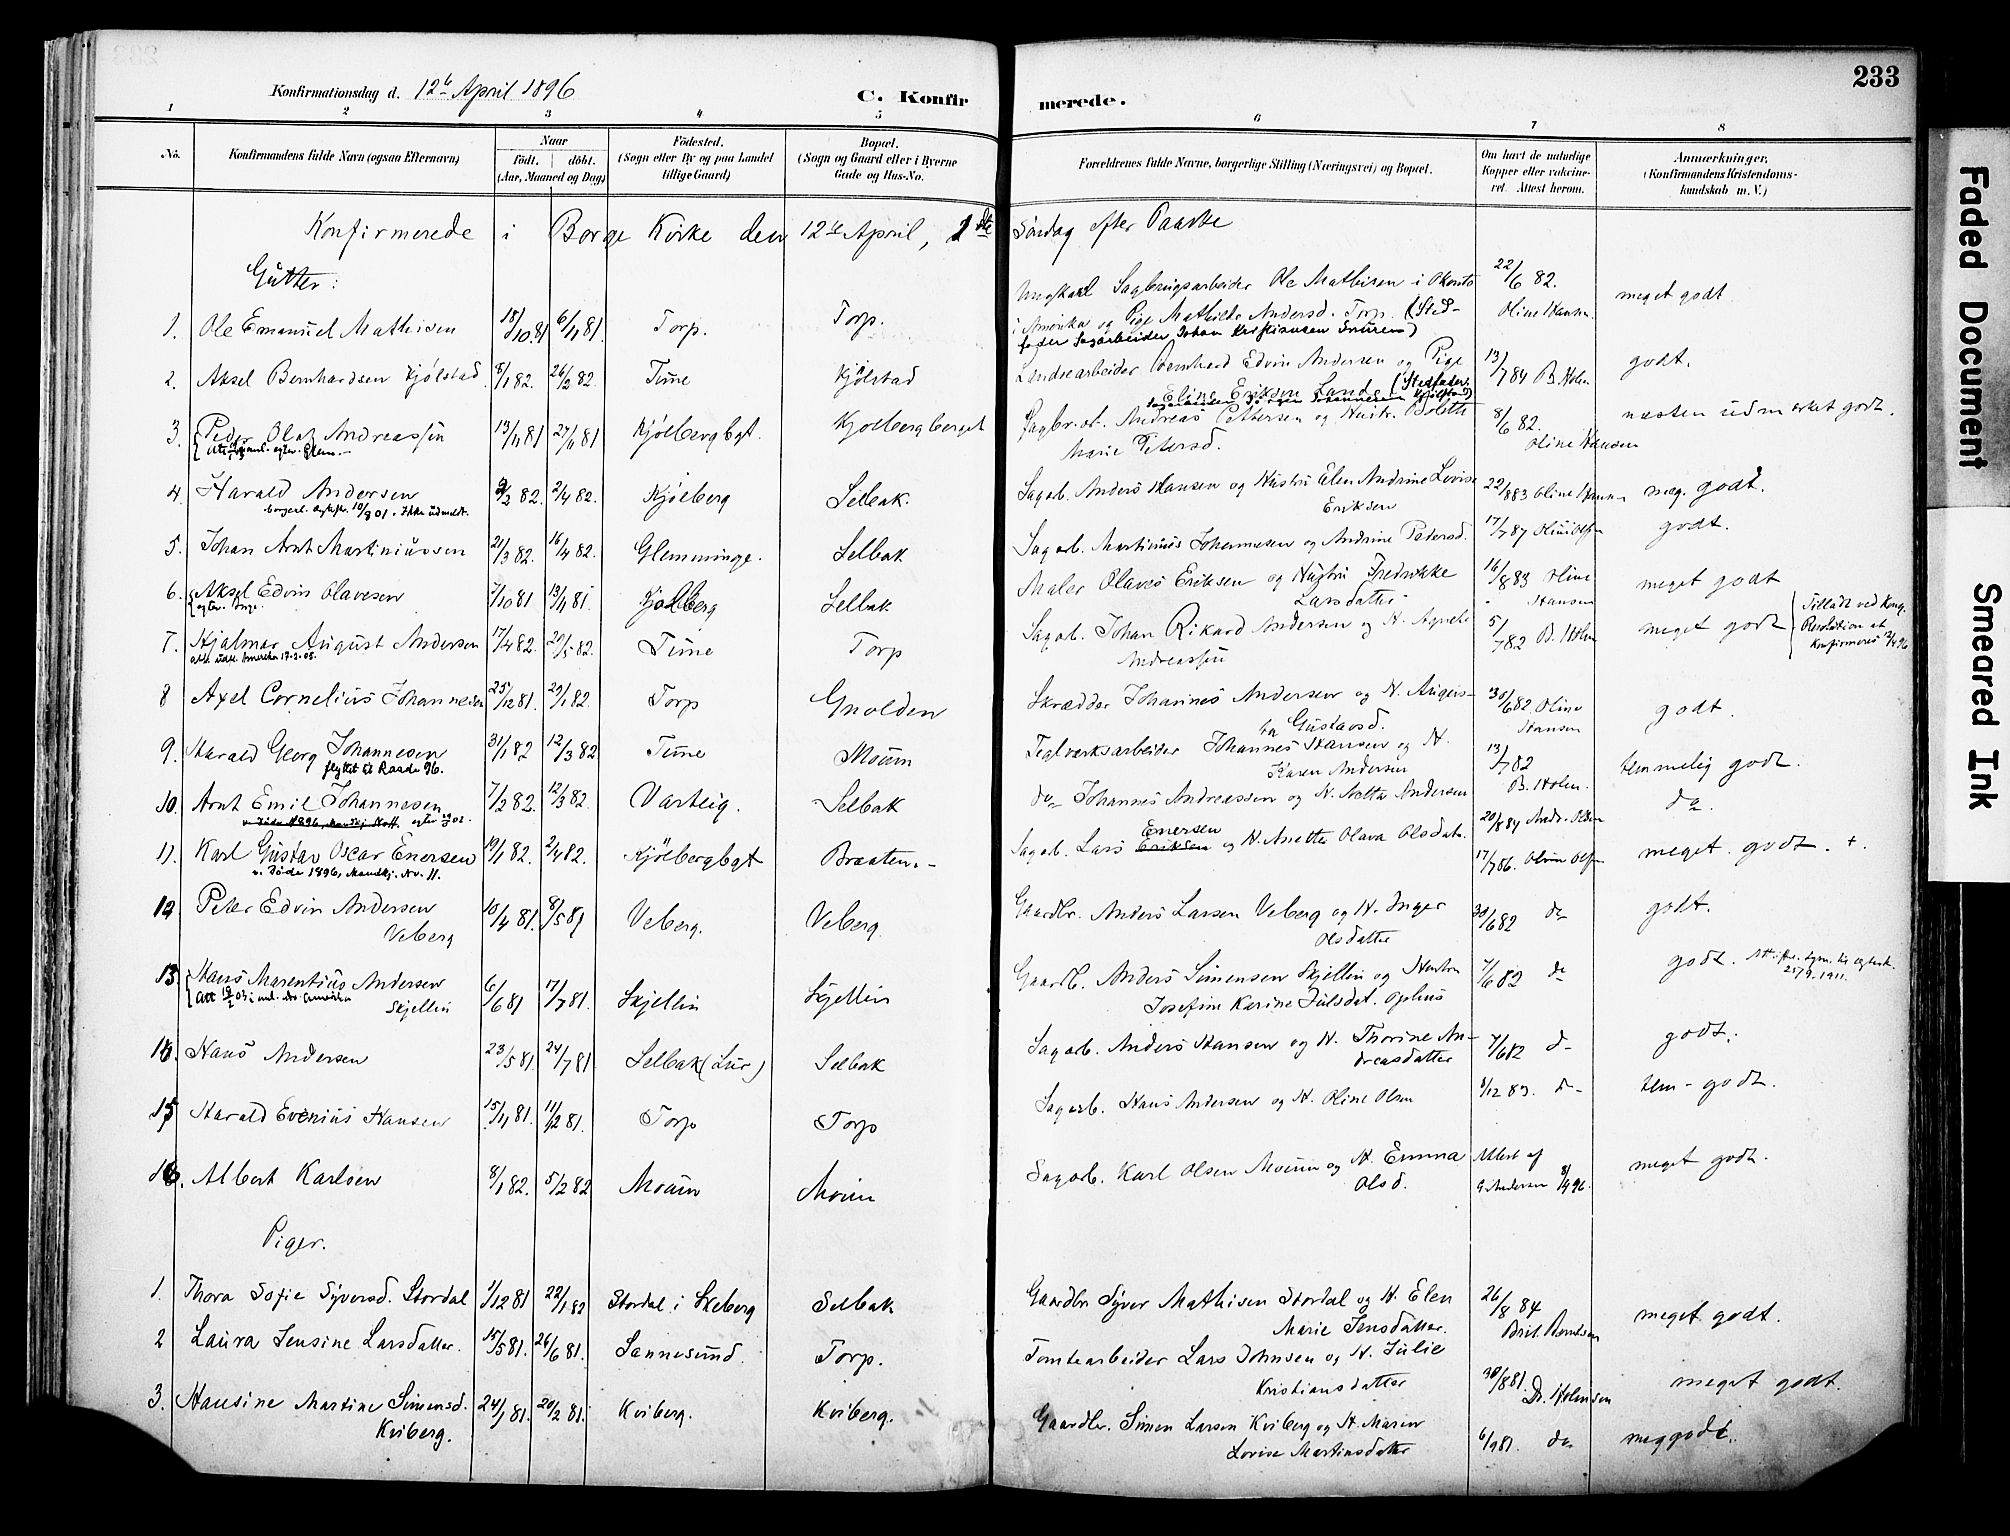 233
Konfirmationsdag d. 12te April 1896
C. Konfirmerede.
1 2 3 4 5 6 7 8
No. Konfirmandens fulde Navn (ogsaa Efternavn) Naar født. døbt. (Aar, Maaned og Dag) Fødested. (Sogn eller By og paa Landet tillige Gaard) Bopæl. (Sogn og Gaard eller i Byerne Gade og Hus-No. Forældrenes fulde Navne, borgerlige Stilling (Næringsvei) og Bopæl. Om havt de naturlige Kopper eller vakcineret. Attest herom. Anmærkninger, (Konfirmandens Kristendomskundskab m. V.)
Konfirmerede i Borge Kirke den 12te April, 1ste Søndag efter Paaske
Gutter:
1. Ole Emanuel Mathisen 15/10 81 6/11 81 Torp. Torp. Ungkarl Sagbrugsarbeider Ole Mathisen i
i Amerika og Pige Mathilde Andersd. Torp. (Sted-
fader Sagarbeider Johan Kristiansen 22/6 82. Oline Hansen. meget godt
2. Aksel Bernhardsen Kjølstad 8/1 82. 26/2 82. Tune Kjølstad Landearbeider Bernhard Edvin Andersen og Pige
Eline Eriksen (Stedfader: 13/7 84 B. Holm godt.
3. Peder Olaf Andreassen 13/11 81 27/11 81 Kjølbergbgt. Kjølbergberget Sagbr.a. Andreas Pettersen og Hustr. Bolette
Marie Petersd. 8/6 82. Oline Hansen næsten udmærket godt.
4. Harald Andersen 9/2 82. 2/4 82. Kjølberg Selbak. Sagarb. Anders Hansen og Hustru Elen Andrine Lovise
Eriksen 22/8 83 Oline Hansen meg. godt.
5. Johan Arnt Martiniussen 21/3 82. 16/4 82. Glemminge. Selbak Sagarb. Martinius Johannesen og Andrine Pedersd. 17/7 87 godt.
6. Aksel Edvin Olavesen 7/10 81 13/11 81. Kjølberg Selbak Maler Olaves Eriksen og Hustru Fredrikke
Larsdatter 16/8 83 Oline Hansen meget godt
7. Hjalmar August Andersen 17/4 82. 29/5 82. Tune Torp Sagarb. Johan Rikard Andersen og H. Agnethe
Andreassen 5/7 82 B. Holm meget godt Tilladt ved Kong.
Resolution at
Konfirmeres
8 Axel Cornelius Johannesen 25/12 81. 29/1 82. Torp Gnolden Skrædder Johannes Andersen og H. Augus-
ta Gustavsd. 30/6 82 Oline Hansen godt.
9. Harald Georg Johannesen 31/1 82 12/3 82 Tune Moum Teglværksarbeider Johannes Hansen og H.
Karen Andersen 13/7 82 B. Holm. temmelig godt.
flyttet til Raade 96.
10. Arnt Emil Johannesen 7/2 82. 12/3 82. Varteig. Selbak do Johannes Andreassen og H. Netta Andersen 20/8 84 Andr. Olsen do.
11. Karl Gustav Oscar Enersen 19/1 82. 2/4 82. Kjølbergbgt Braaten. Sagarb. Lars Eriksen Enersen og H. Anette Olava Olsdat. 17/7 86. meget godt. +.
v. Døde 1896, Mandkj. No. 11.
12. Peter Edvin Andersen
Veberg 10/4 81. 8/5 81 Veberg. Veberg Gaardbr. Anders Larsen Veberg og H. Inger
Olsdatter 30/6 82 do godt.
13. Hans Marentius Andersen
Skjellin 6/6 81 17/7 81. Skjellin Skjellin Gaardb. Anders Simensen Skjellin og Hustru
Josefine Karine Julsdat. Ophus 7/6 82 do godt.
14. Hans Andersen 23/5 81. 24/7 81 Selbak (Lur) Selbak Sagarb. Anders Hansen og H. Thorine An-
dreasdatter 7/6 82 do godt.
15. Harald Evenius Hansen 15/1 81. 11/2 81. Torp Torp Sagarb. Hans Andersen og H. Oline Olsen 8/12 83. do tem- godt.
16. Albert Karlsen 8/1 82. 5/2 82 Moum Moum Sagarb. Karl Olsen Moum og H. Emma
Olsd. Attest af G. Andersen 8/4 96. meget godt.
Piger.
1. Thora Sofie Syversd. Stordal 1/12 81 22/1 82 Stordal i Skeberg Selbak Gaardbr Syver Mathisen Stordal og H. Elen
Marie Jensdatter. 26/8 84 meget godt.
2 Laura Jensine Larsdatter. 15/5 81. 26/6 81. Sannesund. Torp. Tomtearbeider Lars Johnsen og H. Julie
Kristiansdatter 30/8 81. Dr. meget godt.
3. Hansine Martine Simensd.
Kviberg. 24/1 81. 20/2 81. Kviberg. Kviberg. Gaardbr. Simen Larsen Kviberg og H. Maren
Lovise Martinsdatter 6/9 81. do meg godt.
Faded Document
Smeared Ink